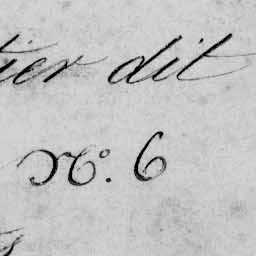 tier dit
N°. 6